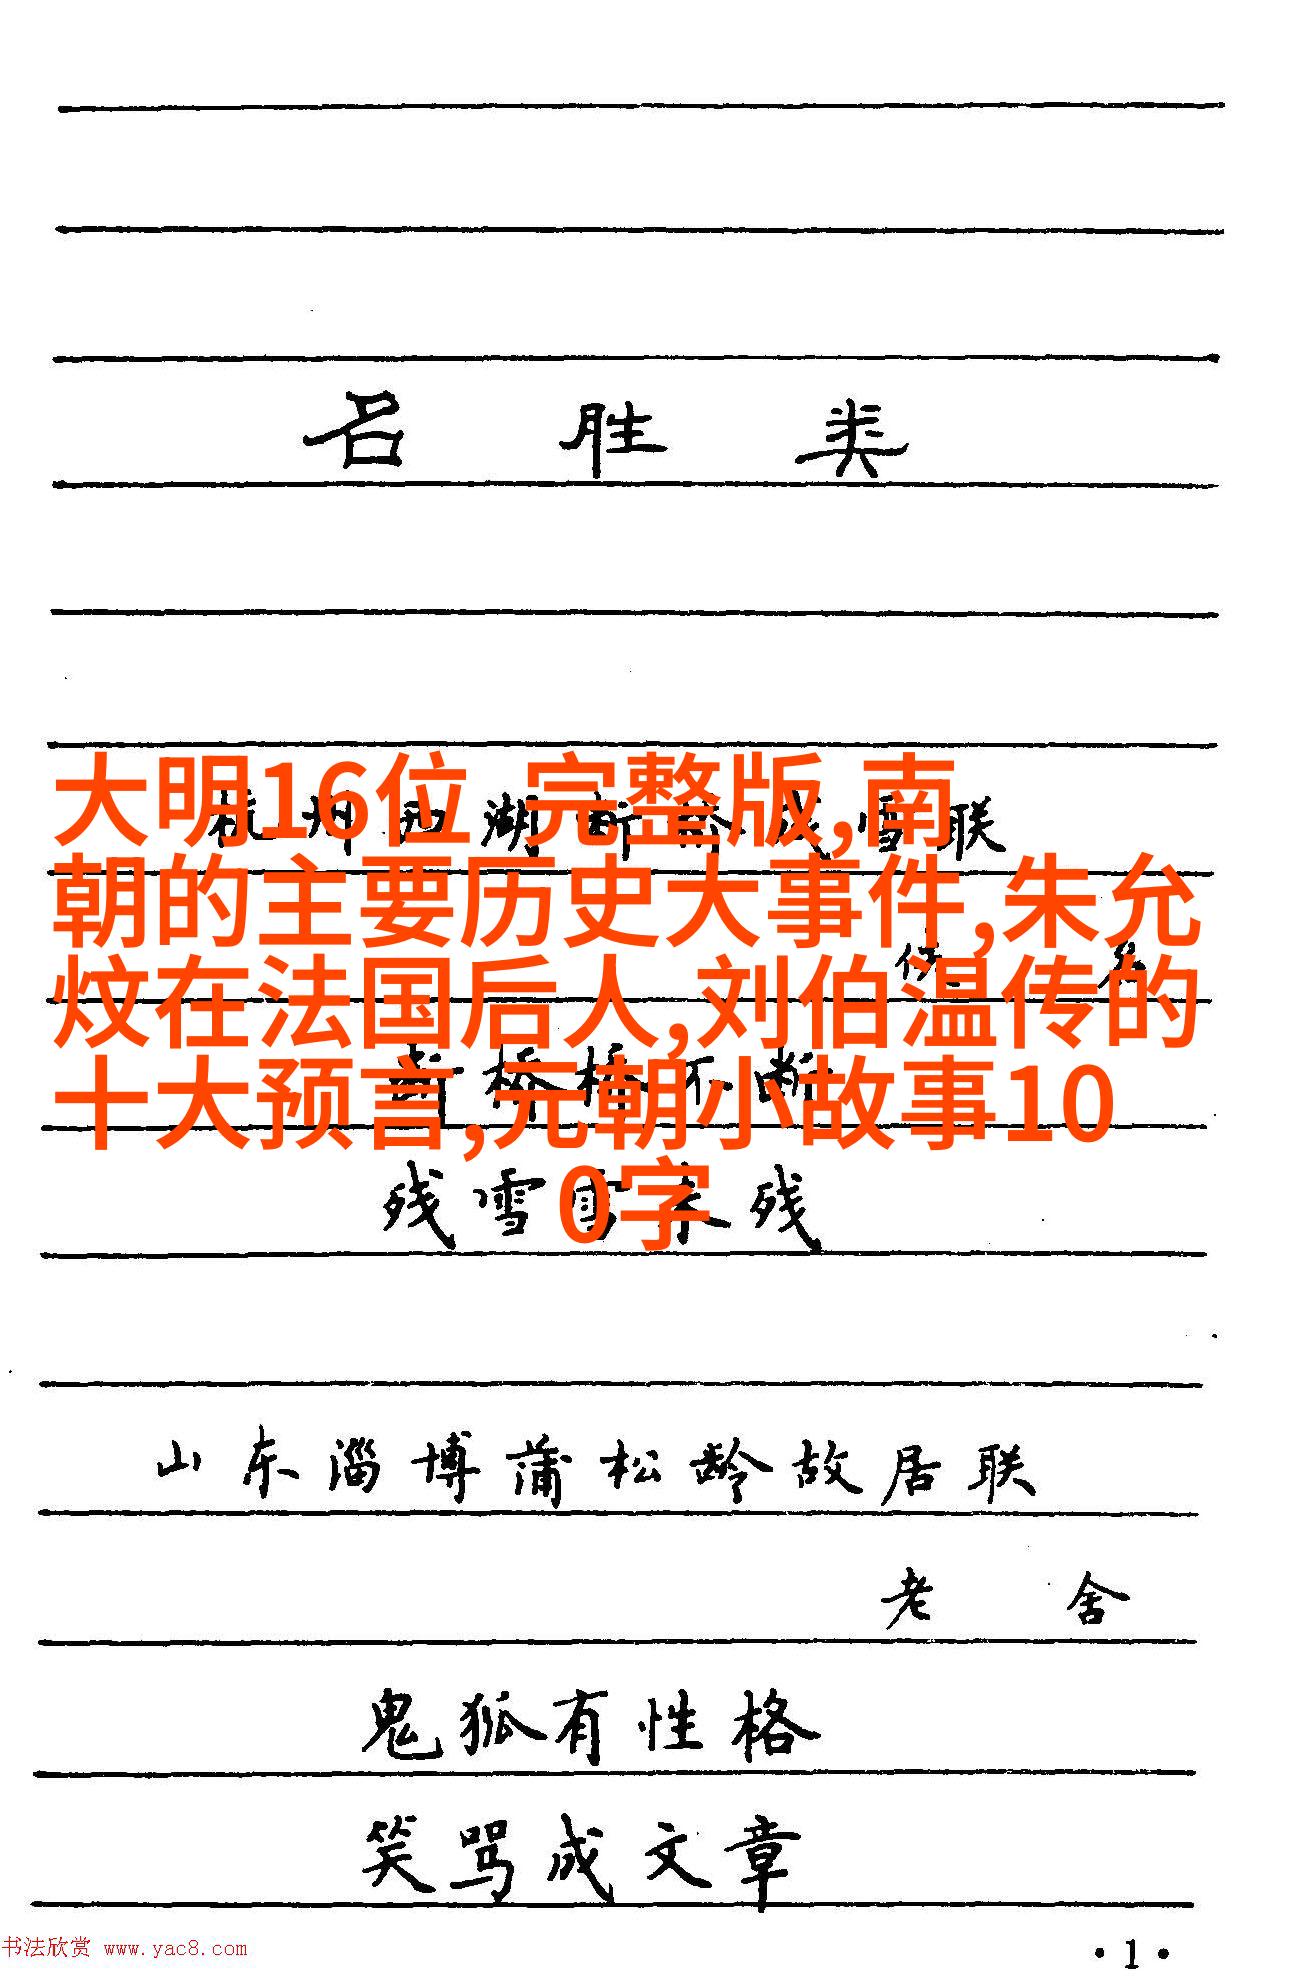 名胜类
杭州西湖断桥残雪联
大明16位 完整版,南
朝的主要历史大事件,朱允
佚名
炆在法国后人,刘伯温传的
断桥桥不断
十大预言,元朝小故事10
残雪雪未残
0字
山东淄博蒲松龄故居联
老舍
鬼狐有性格
笑骂成文章
书法欣赏 www.yac8.com
·1·